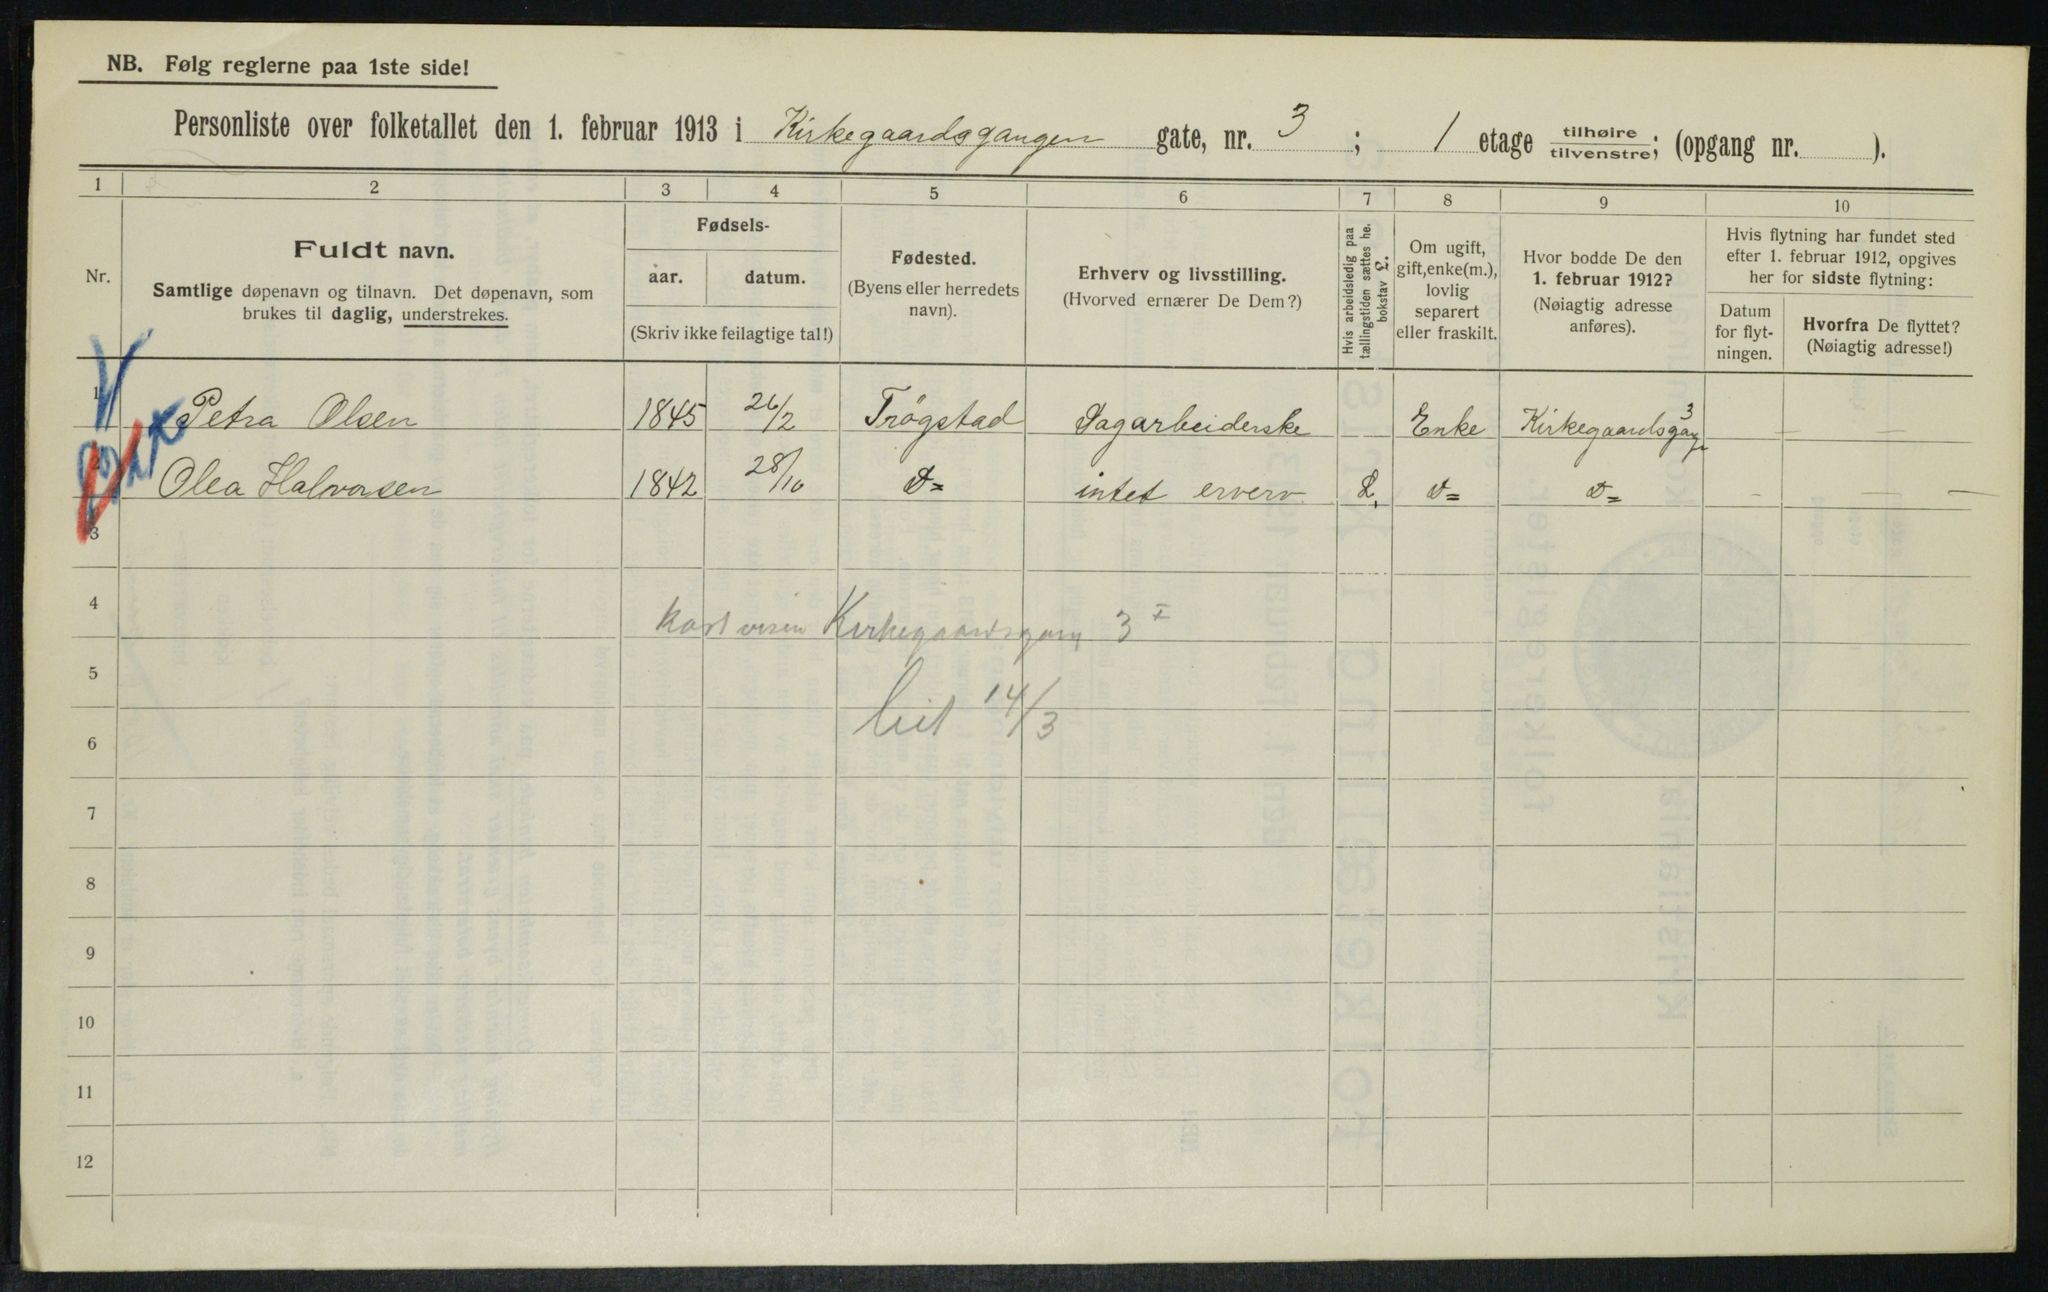 NB. Følg reglerne paa 1ste side!
Personliste over folketallet den 1. februar 1913 i Kirkegaardsgangen gate, nr. 3 ; 1 etage tilhøire tilvenstre; (opgang nr. ).
1 2 3 4 5 6 7 8 9 10
Nr.
Fuldt navn.
Samtlige døpenavn og tilnavn. Det døpenavn, som
brukes til daglig, understrekes.
Fødsels-
aar. datum.
(Skriv ikke feilagtige tal!)
Fødested.
(Byens eller herredets
navn).
Erhverv og livsstilling.
(Hvorved ernærer De Dem?)
Hvis arbeidsledig paa
tællingstiden sættes he.
bokstav L.
Om ugift,
gift, enke(m.),
lovlig
separert
eller fraskilt.
Hvor bodde De den
1. februar 1912?
(Nøiagtig adresse
anføres).
Hvis flytning har fundet sted
efter 1. februar 1912, opgives
her for sidste flytning:
Datum
for flyt-
ningen.
Hvorfra De flyttet?
(Nøiagtig adresse!)
1 Petra Olsen 1845 26/2 Trögstad Dagarbeiderske Enke Kirkegaardsgang 3 — —
2 Olea Halvorsen 1842 28/10 D= intet erverv L. D= D= — — —
3
4
Kirkegaardsgang 3 I
5
14/3
6
7
8
9
10
11
12